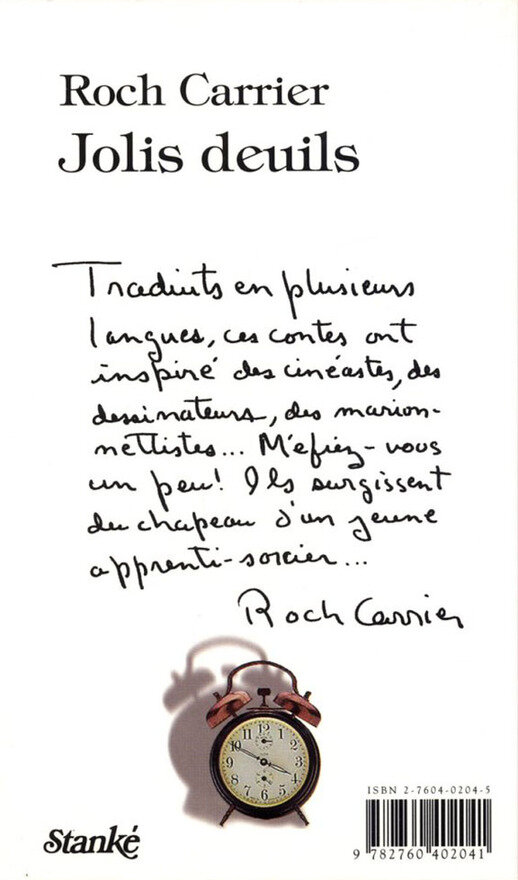 Roch Carrier
Jolis deuils
Traduits en plusieurs
langues, ces contes ont
inspiré des cinéastes, des
dessinateurs, des marion-
nettistes... M'éfiez-vous
un peu! Ils surgissent
du chapeau d'un jeune
apprenti-sorcier...
Roch Carrier
12
1
2
3
4
5
6
7
8
9
10
11
Stanké
ISBN 2-7604-0204-5
9 782760 402041